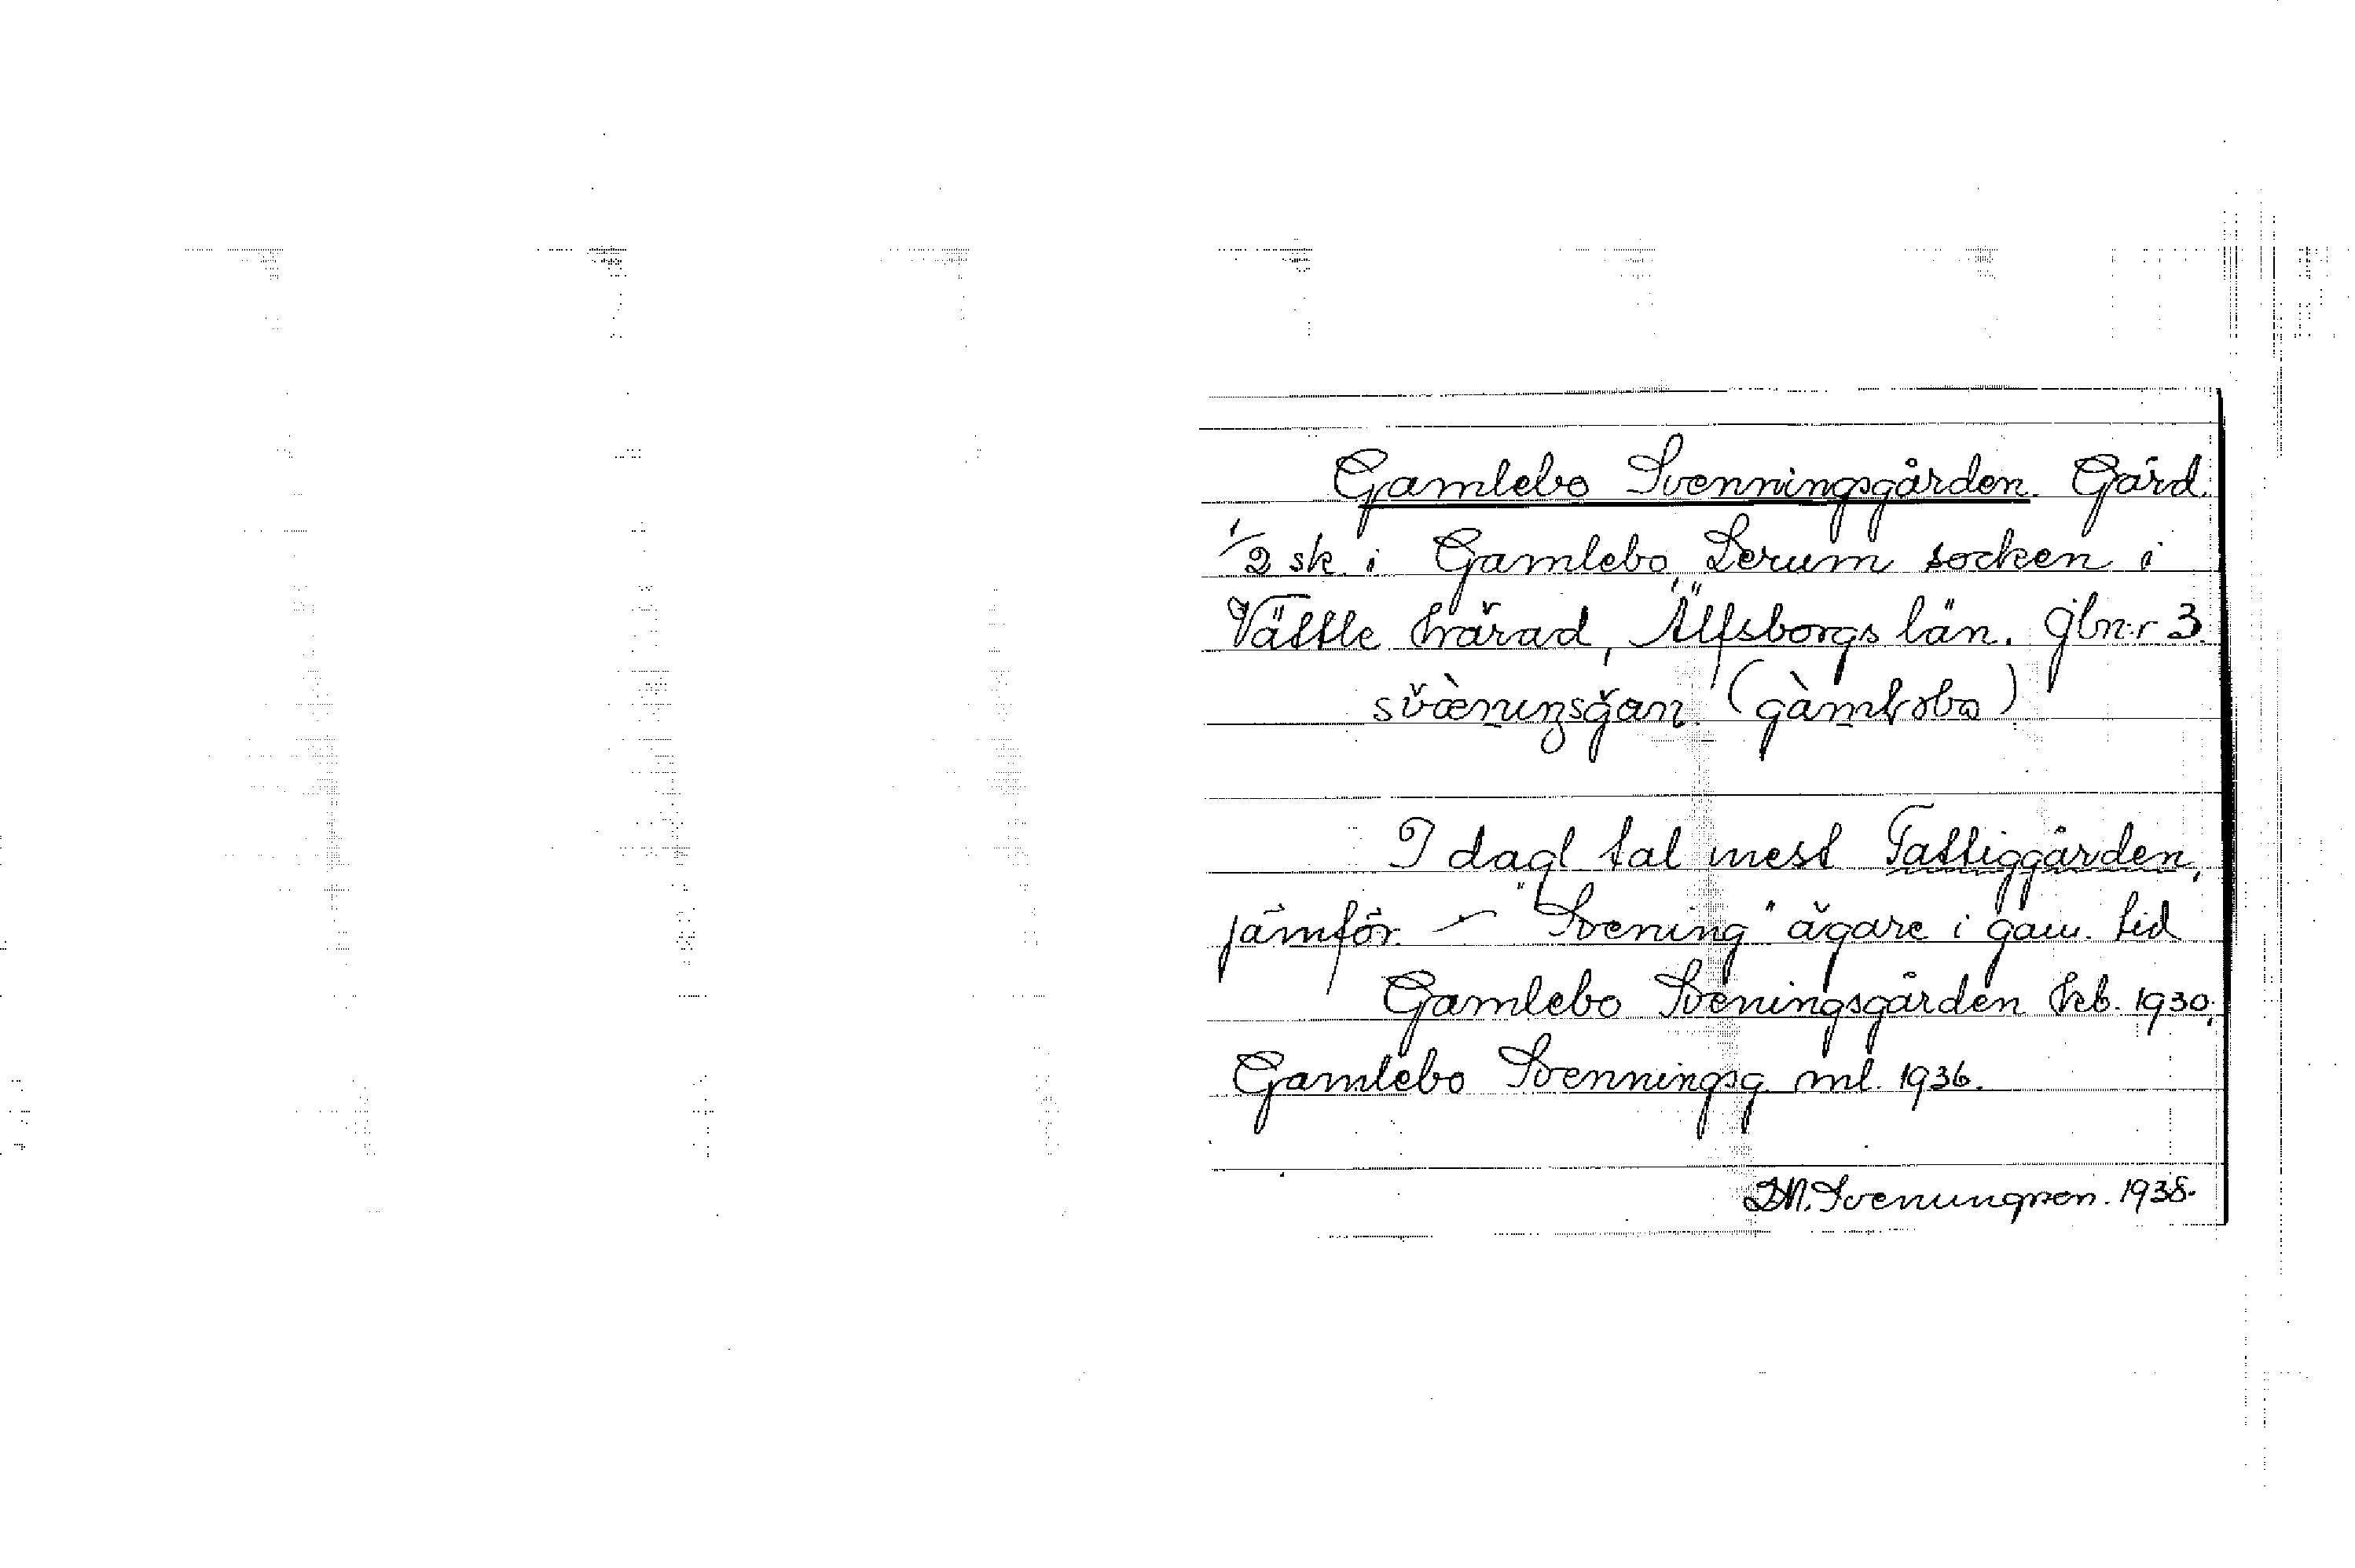 Gamlebo Svenningsgården. Gård.
1/2 sk. i Gamlebo, Lerum socken i
Vättle härad, Älfsborgs län. gbn:r 3.
I dagl tal mest Fattiggården,
jämför — "Svening" ägare i gam. tid
Gamlebo Sveningsgården keb. 1930,
Gamlebo Svenningsg. ml. 1936.
Svenungsson. 1938.